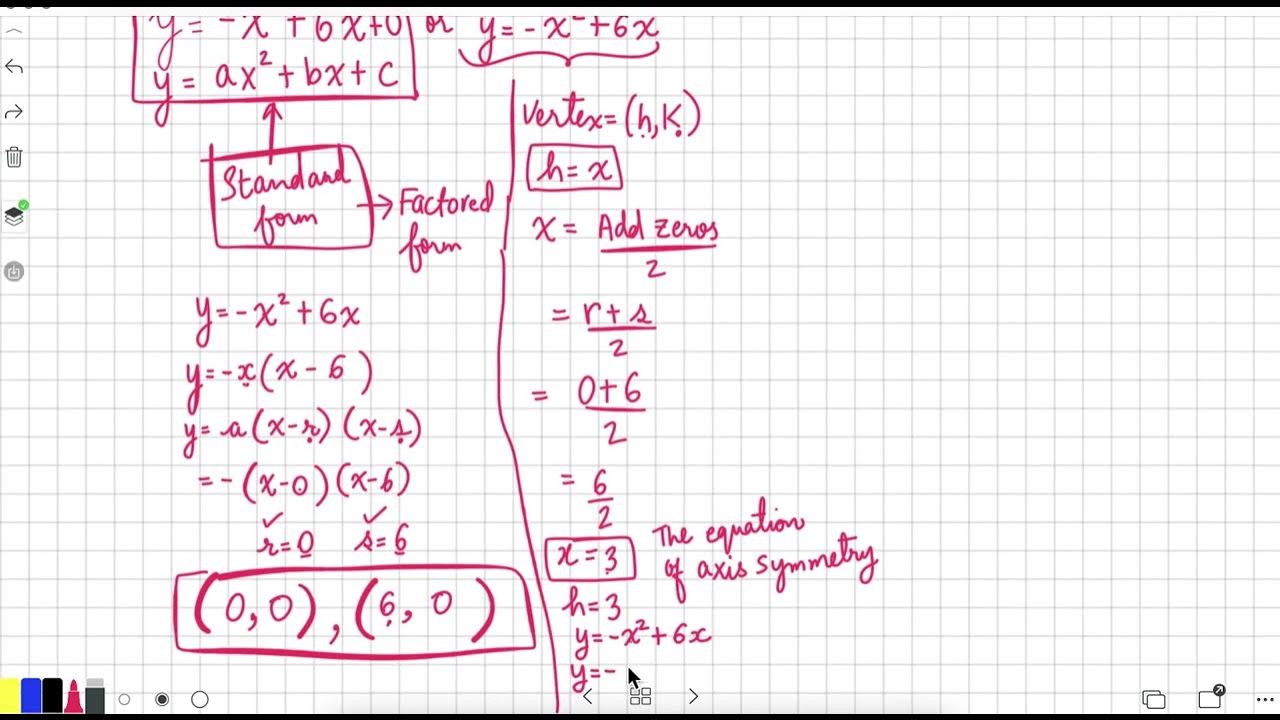 y = -x² + 6x+0 or y = -x² + 6x
y = ax² + bx + c
Standard form
→ Factored form
y = -x² + 6x
y = -x(x - 6)
y = a(x-r)(x-s)
= -(x-0)(x-6)
✓ ✓
r=0 s=6
(0,0), (6, 0)
Vertex = (h,K)
h = x
x = Add zeros
2
= r+s
2
= 0+6
2
= 6
2
x = 3 The equation
of axis symmetry
h=3
y = -x² + 6x
y = -